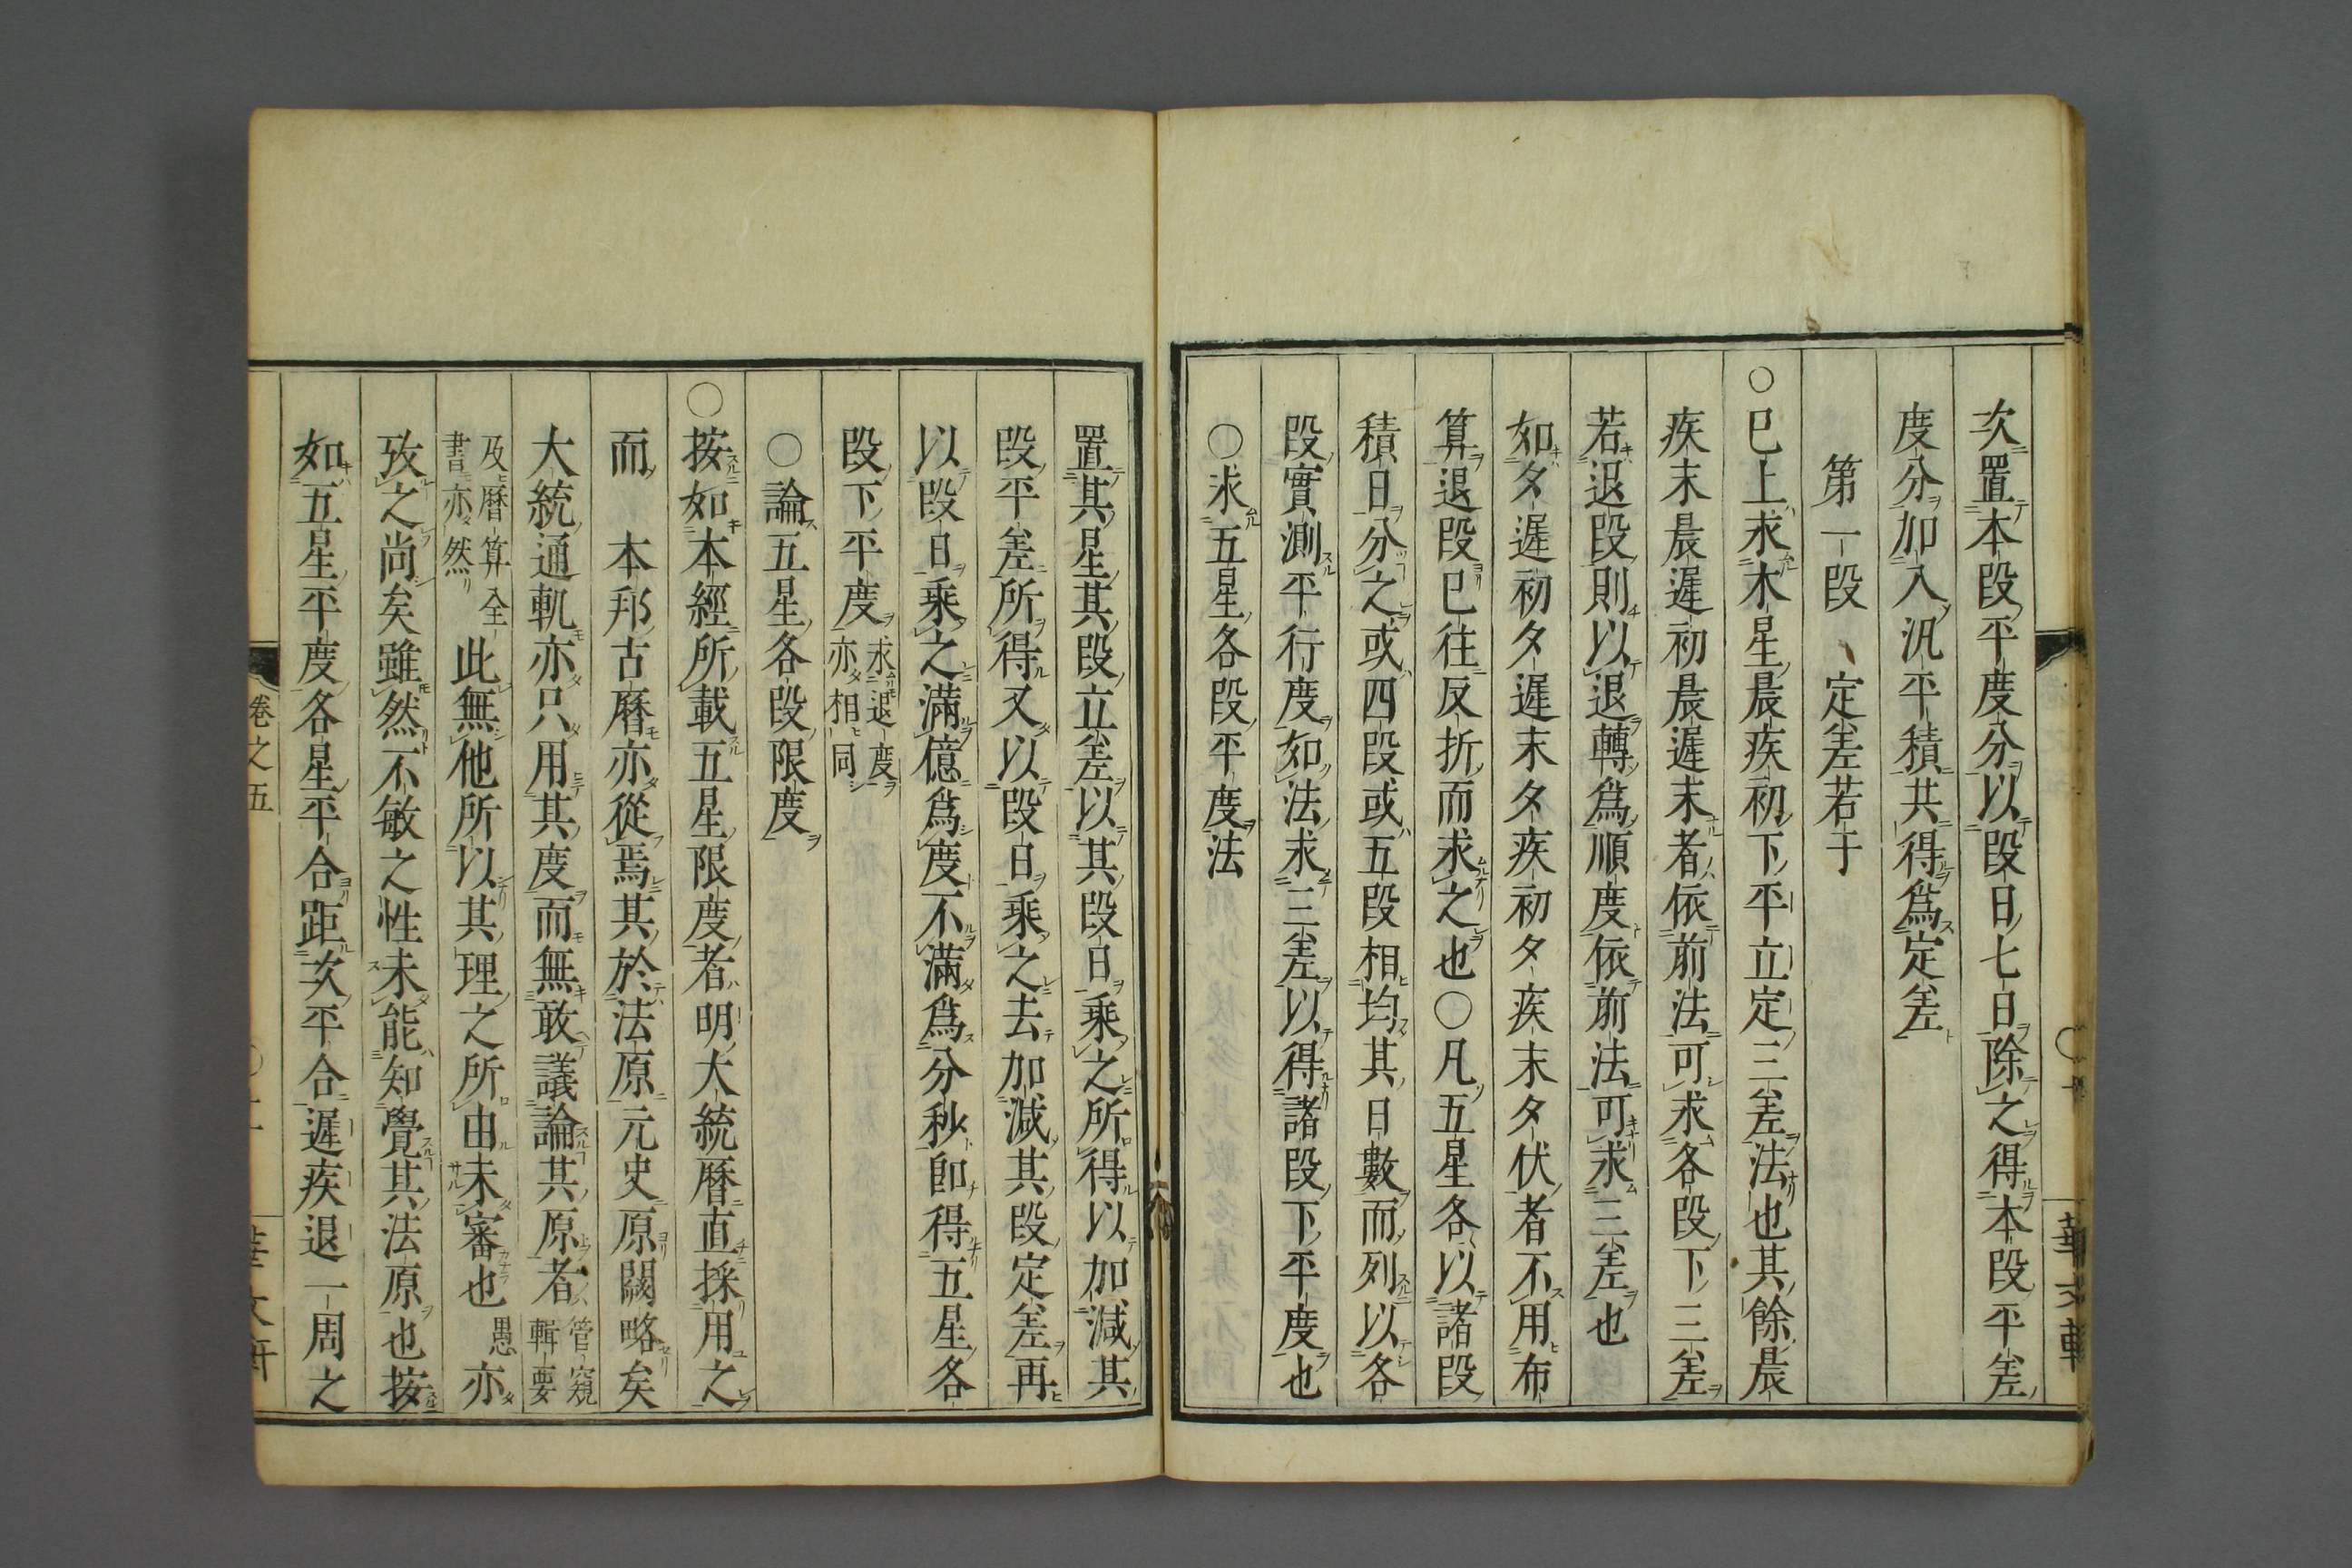 次置本段平度分以段日七日除之得本段平差
度分加入汎平積共得爲定差
第一段　定差若干
○已上求木星晨疾初下平立定三差法也其餘晨
疾末晨遲初晨遲末者依前法可求各段下三差
若退段則以退轉爲順度依前法可求三差也
如夕遲初夕遲末夕疾初夕疾末夕伏者不用布
算退段已往反折而求之也○凡五星各以諸段
積日分之或四段或五段相均其日數而列以各
段實測平行度如法求三差以得諸段下平度也
○求五星各段平度法
置其星其段立差以其段日乘之所得以加減其
段平差所得又以段日乘之去加減其段定差再
以段日乘之滿億爲度不滿爲分秒卽得五星各
段下平度求退度亦相同
○論五星各段限度
○按如本經所載五星限度者明大統曆直採用之
而　本邦古曆亦從焉其於法原元史原闕略矣
大統通軌亦只用其度而無敢議論其原者管窺輯要
及曆算全書亦然此無他所以其理之所由未審也愚亦
攷之尚矣雖然不敏之性未能知覺其法原也按
如五星平度各星平合距次平合遲疾退一周之
卷之五